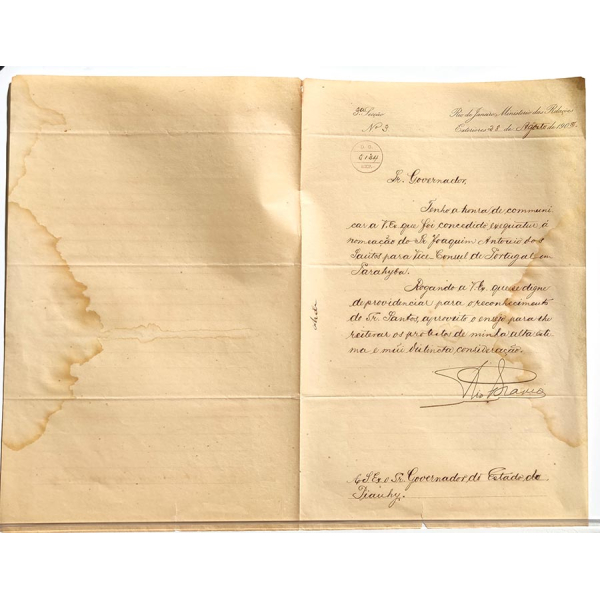 3ª Secção
Nº 3
Rio de Janeiro, Ministerio das Relações
Exteriores 28 de Agosto de 190
5134
Sr. Governador,
Tenho a honra de communi
car a V. Ex. que foi concedido exequatur á
nomeação do Sr. Joaquim Antonio dos
Santos para Vice-Consul de Portugal em
Parahyba.
Rogando a V. Ex. que se digne
de providenciar para o reconhecimento
do Sr. Santos, aproveito o ensejo para lhe
reiterar os protestos de minha alta esti
ma e mui distincta consideração.
Rio Branco
A S. Ex. o Sr. Governador do Estado do
Piauhy.